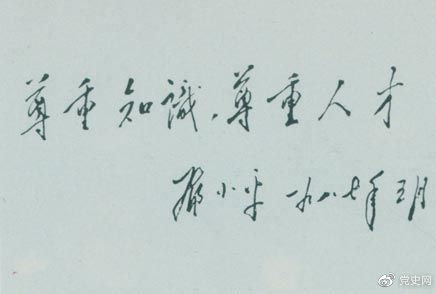 尊重知識,尊重人才
鄧小平 一九八七年五月
党史网